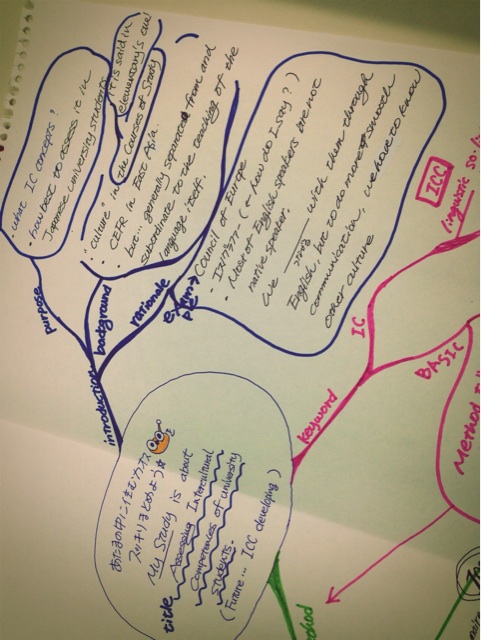 あたまの中にひそむカオス
スッキリまとめよう☆
My Study is about
title
Assessing Intercultural
Competences of university
students.
(Future... ICC developing)
introduction
purpose
what IC concepts?
・how best to assess it in
Japanese university students
background
it is said in
elementary's eve!
"culture" in the Courses of Study
・CEFR in East Asia.
but... generally separated from and
subordinate to the teaching of the
language itself.
rationale
Council of Europe
(← how do I say?)
・Most of English speakers are not
native speaker.
We with them through
English, but to do more smooth
communication, we have to know
other culture
keyword
IC
ICC
linguistic
BASIC
Method